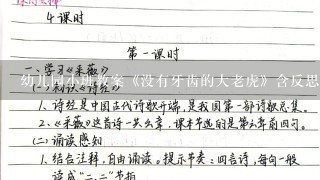 4课时
第一课时
一、学习《采薇》
幼儿园小班教案《没有牙齿的大老虎》含反思
《诗经》
1、诗经是中国古代诗歌开端,是我国第一部诗歌总集。
2、《采薇》这首诗一共六章,课本节选的是第六章前四句。
(二)诵读感知
1、结合注释,自由诵读。提示节奏:四言诗,每句一般
读成“二、二”节拍